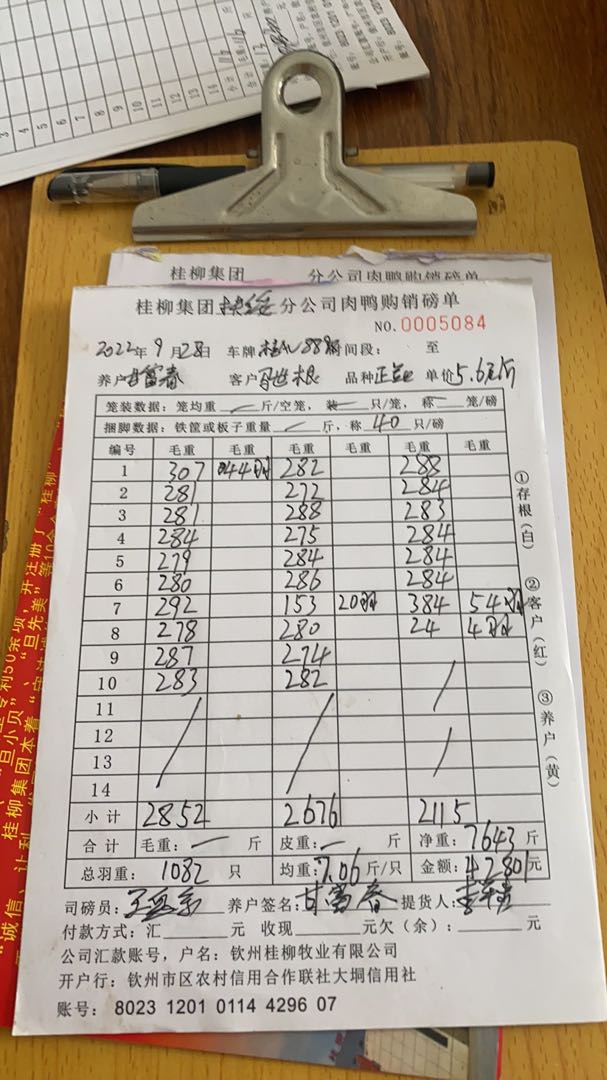 桂柳集团 分公司肉鸭购销磅单
桂柳集团 分公司肉鸭购销磅单
NO.0005084
2022年9月28日 车牌 889 时间段: 至
养户 甘富春 客户 根 品种 正 单价 5.6元/斤
笼装数据: 笼均重 斤/空笼, 装 只/笼, 称 笼/磅
捆脚数据: 铁筐或板子重量 斤, 称 40 只/磅
编号 毛重 毛重 毛重 毛重 毛重 毛重
1 307 44羽 282 288
2 281 272 284
3 281 288 283
4 284 275 284
5 279 284 284
6 280 286 284
7 292 153 20羽 384 54羽
8 278 280 24 4羽
9 287 274
10 283 282
11
12
13
14
小计 2852 2676 2115
合计 毛重: 斤 皮重: 斤 净重: 7643 斤
总羽重: 1082 只 均重: 7.06 斤/只 金额: 42801 元
司磅员: 养户签名: 甘富春 提货人:
付款方式: 汇 元 收现 元欠(余): 元
公司汇款账号, 户名: 钦州桂柳牧业有限公司
开户行: 钦州市区农村信用合作联社大垌信用社
账号: 8023 1201 0114 4296 07
①存根(白)
②客户(红)
③养户(黄)